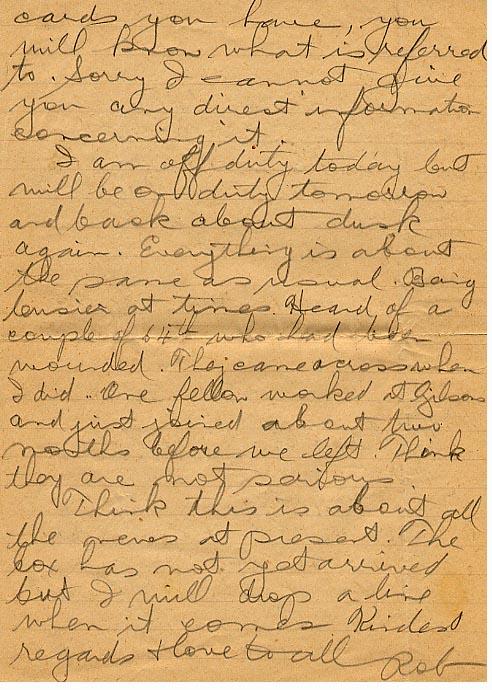 cards you have, you
will know what is referred
to. Sorry I cannot give
you any direct information
concerning it.
I am off duty today but
will be on duty tomorrow
and back about dusk
again. Everything is about
the same as usual. Being
busier at tymes. Heard of a
couple of 64th who had been
wounded. They came across when
I did. One fellow worked at Gilsons
and just joined about two
months before we left. Think
they are not serious.
Think this is about all
the news at present. The
box has not yet arrived
but I will drop a line
when it comes Kindest
regards & love to all Rob